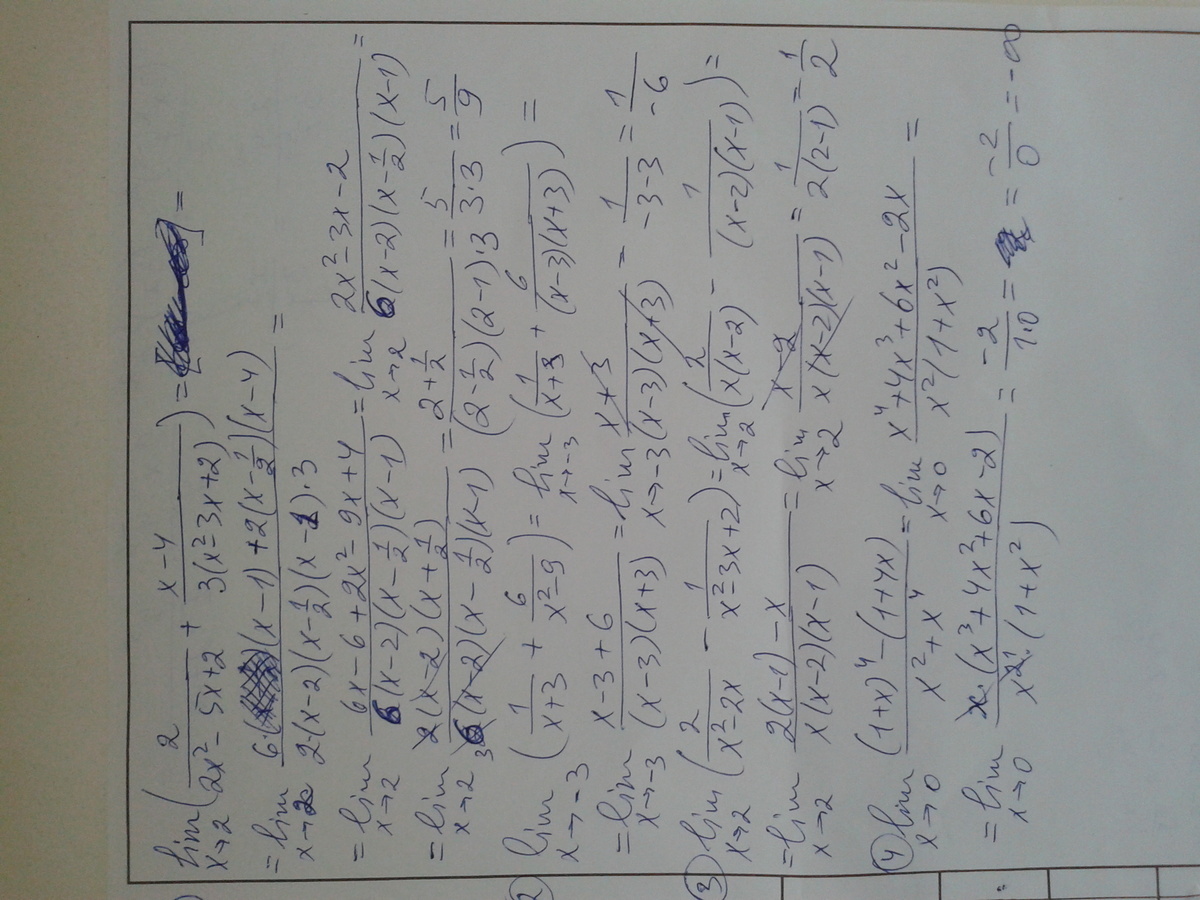 lim x→2 (2/(2x² - 5x + 2) + (x-4)/(3(x² - 3x + 2))) = =
= lim x→2 (6·(x-1) + 2(x-1/2)(x-4))/(2·(x-2)(x-1/2)(x-1)·3) =
= lim x→2 (6x - 6 + 2x² - 9x + 4)/(6(x-2)(x-1/2)(x-1)) = lim x→2 (2x² - 3x - 2)/(6(x-2)(x-1/2)(x-1)) =
= lim x→2 (2(x-2)(x+1/2))/(6(x-2)(x-1/2)(x-1)) 3 = (2+1/2)/((2-1/2)(2-1)·3) = 5/(3·3) = 5/9
2) lim x→-3 (1/(x+3) + 6/(x²-9)) = lim x→-3 (1/(x+3) + 6/((x-3)(x+3))) =
= lim x→-3 (x-3+6)/((x-3)(x+3)) = lim x→-3 (x+3)/((x-3)(x+3)) = 1/(-3-3) = 1/-6
3) lim x→2 (2/(x²-2x) - 1/(x²-3x+2)) = lim x→2 (2/(x(x-2)) - 1/((x-2)(x-1))) =
= lim x→2 (2(x-1)-x)/(x(x-2)(x-1)) = lim x→2 (x-2)/(x(x-2)(x-1)) = 1/(2(2-1)) = 1/2
4) lim x→0 ((1+x)⁴-(1+4x))/(x²+x⁴) = lim x→0 (x⁴+4x³+6x²-2x)/(x²(1+x²)) =
= lim x→0 (x·(x³+4x³+6x-2))/(x²·(1+x²)) = -2/(1·0) = = -2/0 = -∞